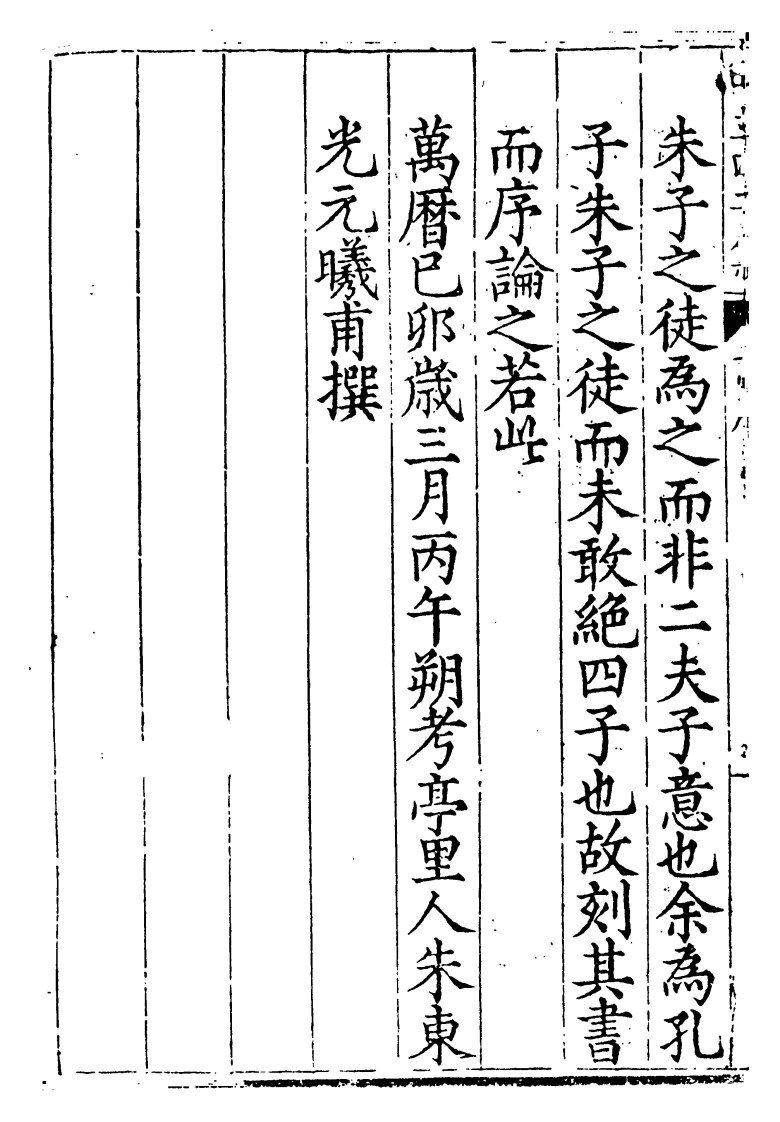 朱子之徒為之而非二夫子意也余為孔
子朱子之徒而未敢絕四子也故刻其書
而序論之若此
萬曆已卯歲三月丙午朔考亭里人朱東
光元曦甫撰